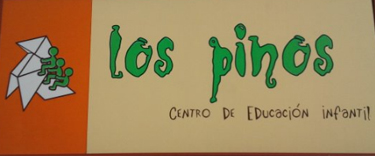 los pinos
CENTRO DE EDUCACIÓN INFANTIL